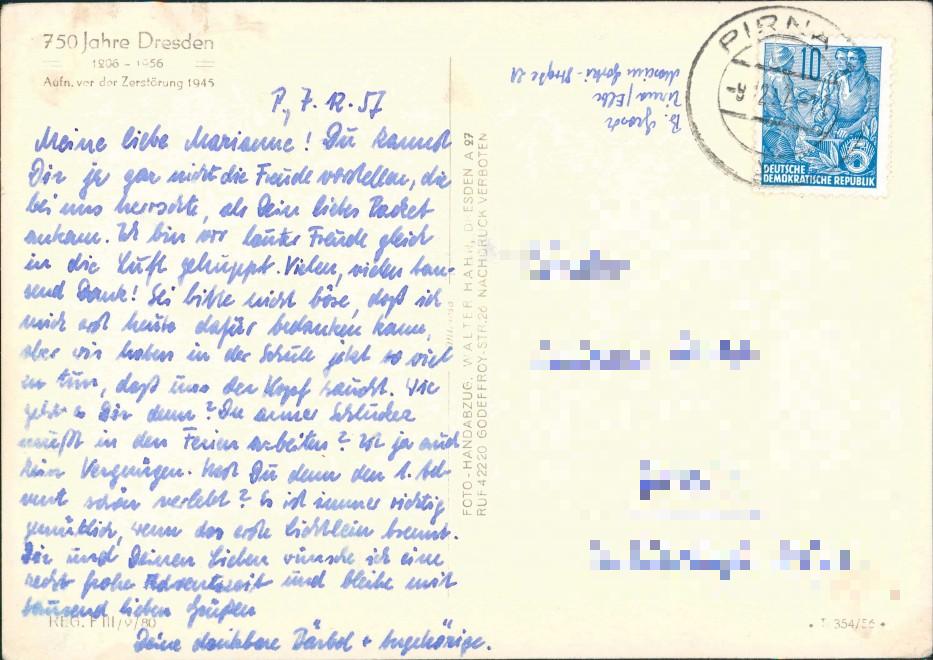 750 Jahre Dresden
1206 – 1956
Aufn. vor der Zerstörung 1945
P., 7. 12. 57
Meine liebe Marianne! Du kannst
Dir ja gar nicht die Freude vorstellen, die
bei uns herrschte, als Dein liebes Packet
ankam. Ich bin vor lauter Freude gleich
in die Luft gehuppt. Vielen, vielen tau-
send Dank! Sei bitte nicht böse, daß ich
mich erst heute dafür bedanken kann,
aber wir haben in der Schule jetzt so viel
zu tun, daß uns der Kopf raucht. Wie
geht es Dir denn? Du armer Schlucker
mußt in den Ferien arbeiten? Ist ja auch
kein Vergnügen. Hast Du denn den 1. Ad-
vent schön verlebt? Es ist immer richtig
gemütlich, wenn das erste Lichtlein brennt.
Dir und Deinen Lieben wünsche ich eine
recht frohe Adventszeit und bleibe mit
tausend lieben Grüßen
Deine dankbare Bärbel + Angehörige.
REG. F III/9/80
FOTO-HANDABZUG. WALTER HAHN, DRESDEN A 27
RUF 42220 GODEFFROY-STR. 26 NACHDRUCK VERBOTEN
B.
Pirna/Elbe
Maxim Gorki-Straße 21
PIRNA
-9.12.57
10
5
DEUTSCHE
DEMOKRATISCHE REPUBLIK
354/56